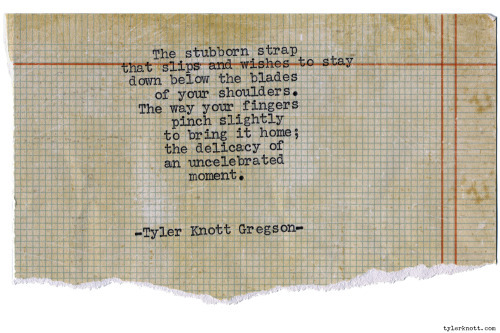 The stubborn strap
that slips and wishes to stay
down below the blades
of your shoulders.
The way your fingers
pinch slightly
to bring it home;
the delicacy of
an uncelebrated
moment.
-Tyler Knott Gregson-
tylerknott.com